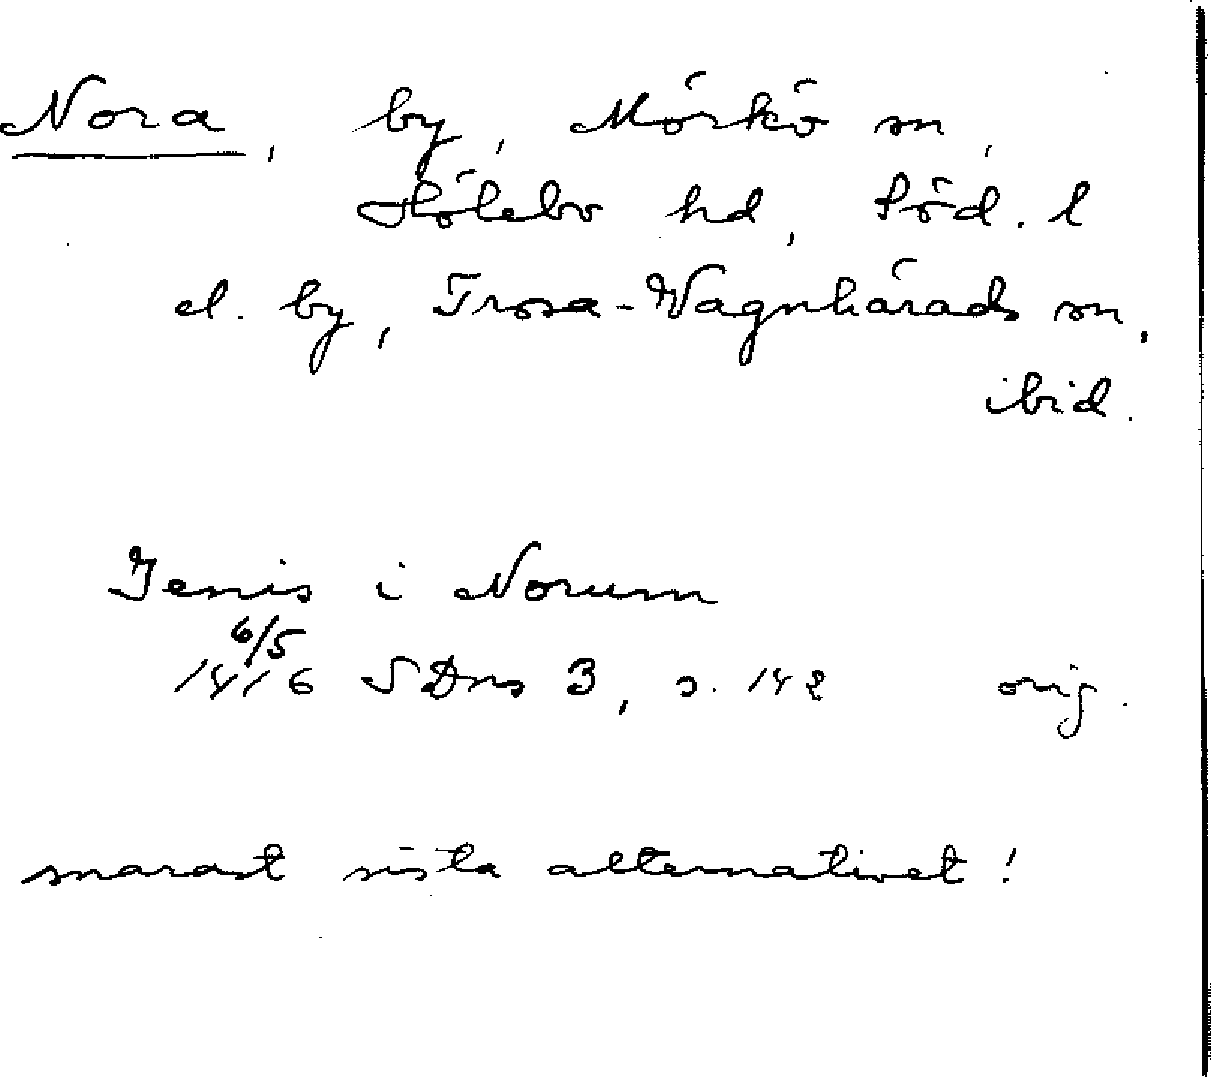 Nora, by, Mörkö sn,
Hölebo hd, Söd. l
el. by, Trosa-Vagnhärads sn,
ibid.
Jenis i Norum
6/5
1416 SDns 3, s. 142 orig.
snarast sista alternativet!